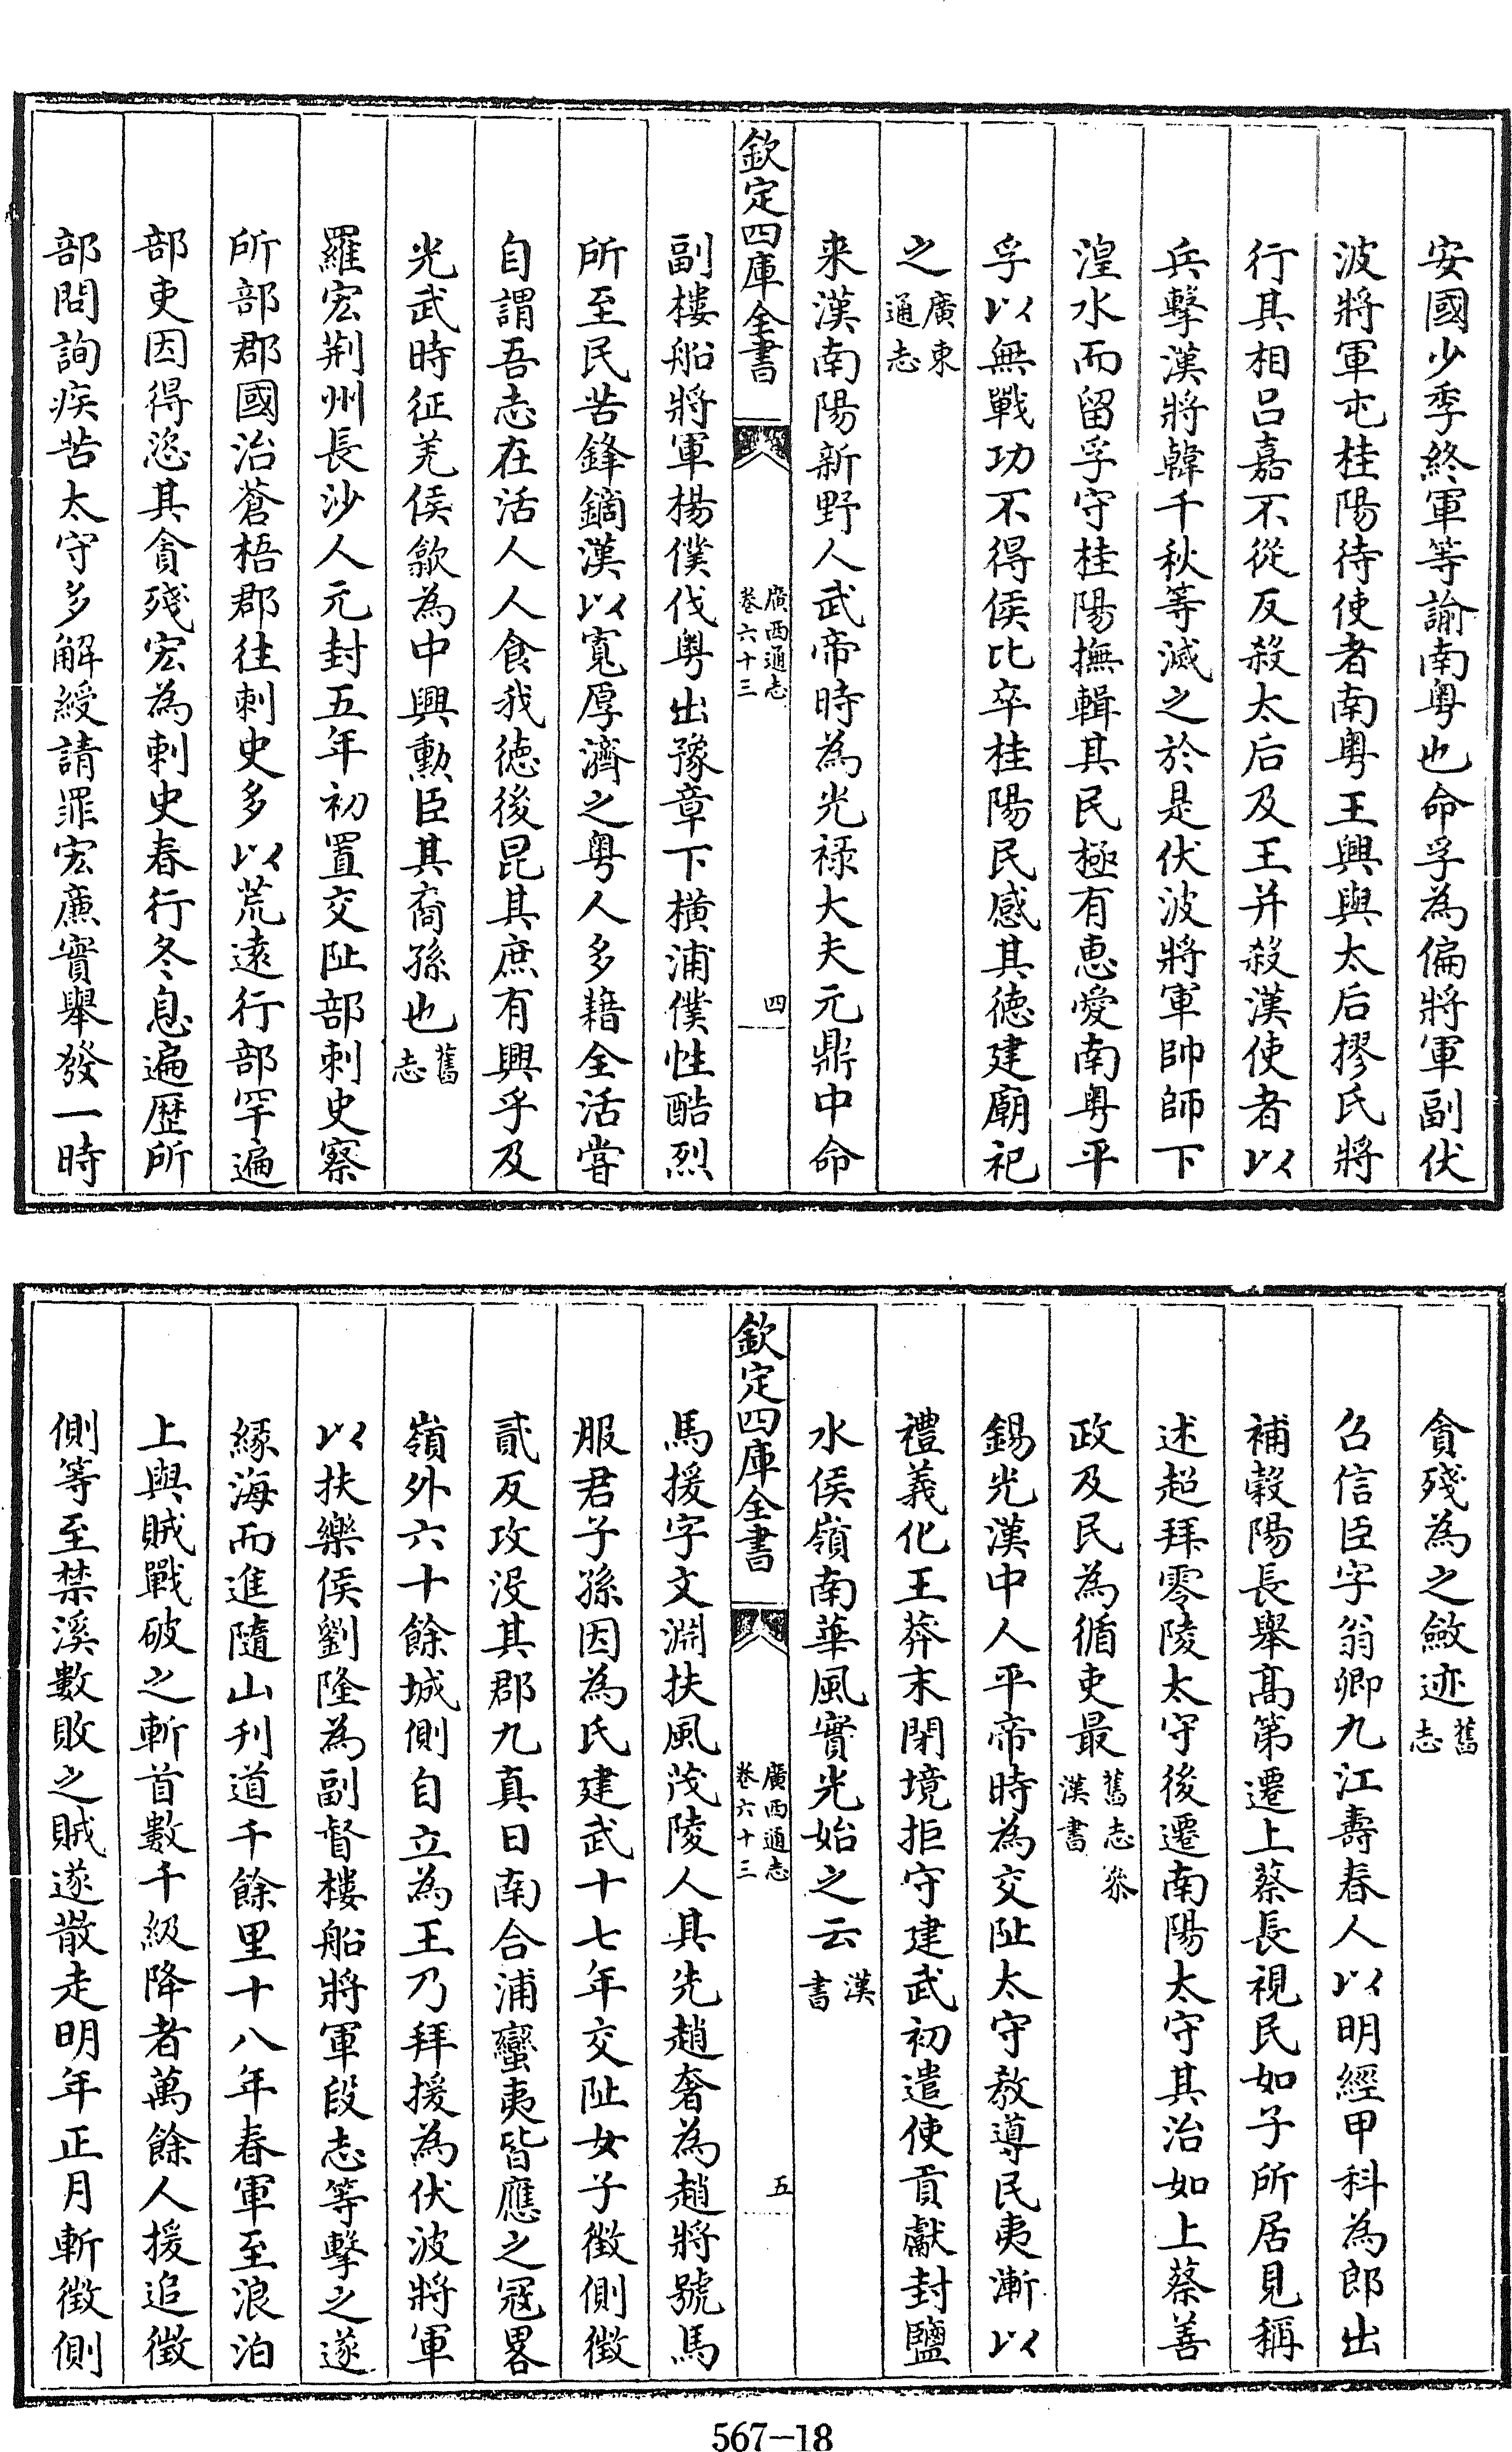 安國少季終軍等諭南粤也命孚為偏將軍副伏
波將軍屯桂陽待使者南粤王興與太后摎氏將
行其相吕嘉不從反殺太后及王并殺漢使者以
兵擊漢將韓千秋等滅之於是伏波將軍帥師下
湟水而留孚守桂陽撫輯其民極有惠愛南粤平
孚以無戰功不得侯比卒桂陽民感其徳建廟祀
之廣東通志
来漢南陽新野人武帝時為光禄大夫元鼎中命
欽定四庫全書 廣西通志卷六十三 四
副樓船將軍楊僕伐粤出豫章下横浦僕性酷烈
所至民苦鋒鏑漢以寬厚濟之粤人多籍全活嘗
自謂吾志在活人人食我徳後昆其庶有興乎及
光武時征羌侯歙為中興勲臣其裔孫也舊志
羅宏荆州長沙人元封五年初置交阯部刺史察
所部郡國治蒼梧郡往刺史多以荒逺行部罕遍
部吏因得恣其貪殘宏為刺史春行冬息遍歴所
部問詢疾苦太守多解綬請罪宏亷實舉發一時
貪殘為之斂迹舊志
召信臣字翁卿九江壽春人以明經甲科為郎出
補榖陽長舉髙第遷上蔡長視民如子所居見稱
述超拜零陵太守後遷南陽太守其治如上蔡善
政及民為循吏最舊志叅漢書
錫光漢中人平帝時為交阯太守教導民夷漸以
禮義化王莽末閉境拒守建武初遣使貢獻封鹽
水侯嶺南華風實光始之云漢書
欽定四庫全書 廣西通志卷六十三 五
馬援字文淵扶風茂陵人其先趙奢為趙將號馬
服君子孫因為氏建武十七年交阯女子徴側徴
貳反攻沒其郡九真日南合浦蠻夷皆應之冦畧
嶺外六十餘城側自立為王乃拜援為伏波將軍
以扶樂侯劉隆為副督樓船將軍段志等擊之遂
緣海而進隨山刋道千餘里十八年春軍至浪泊
上與賊戰破之斬首數千級降者萬餘人援追徴
側等至禁溪數敗之賊遂散走明年正月斬徴側
567-18